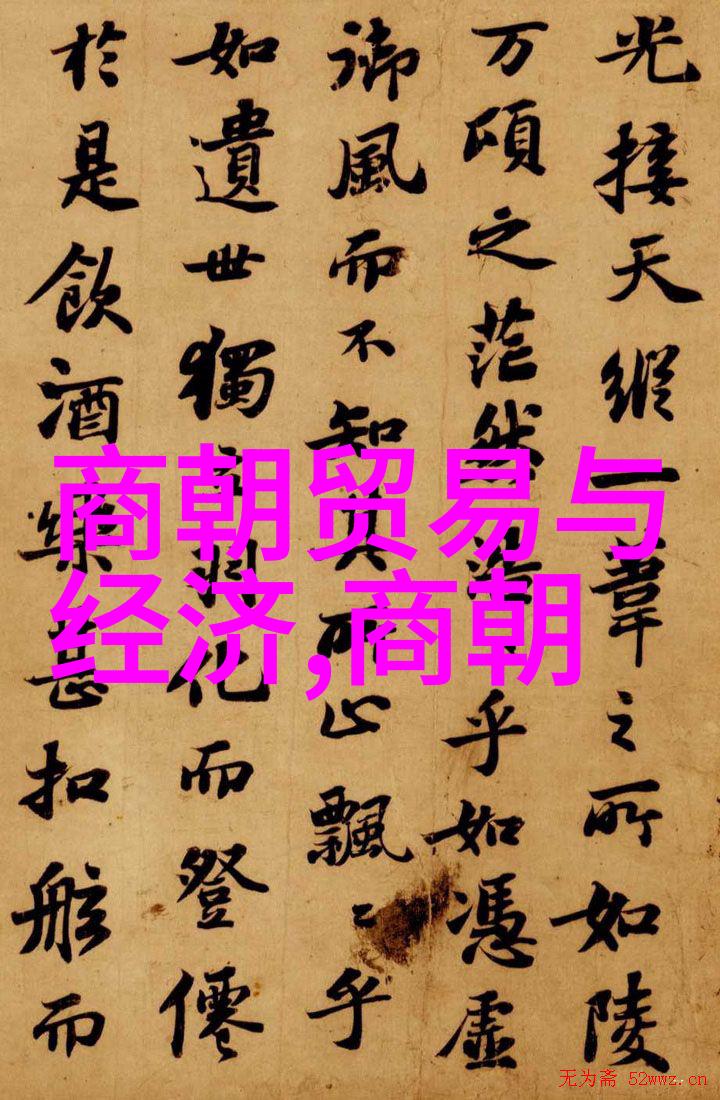 光接天縱一葦之所如陵
万頃之茫然浩〻乎如憑虛
御風而不知其所止飄〻乎
如遺世獨立羽化而登僊
於是飲酒樂甚扣舷而
商朝贸易与
经济,商朝
无为斋 52wwz.cn